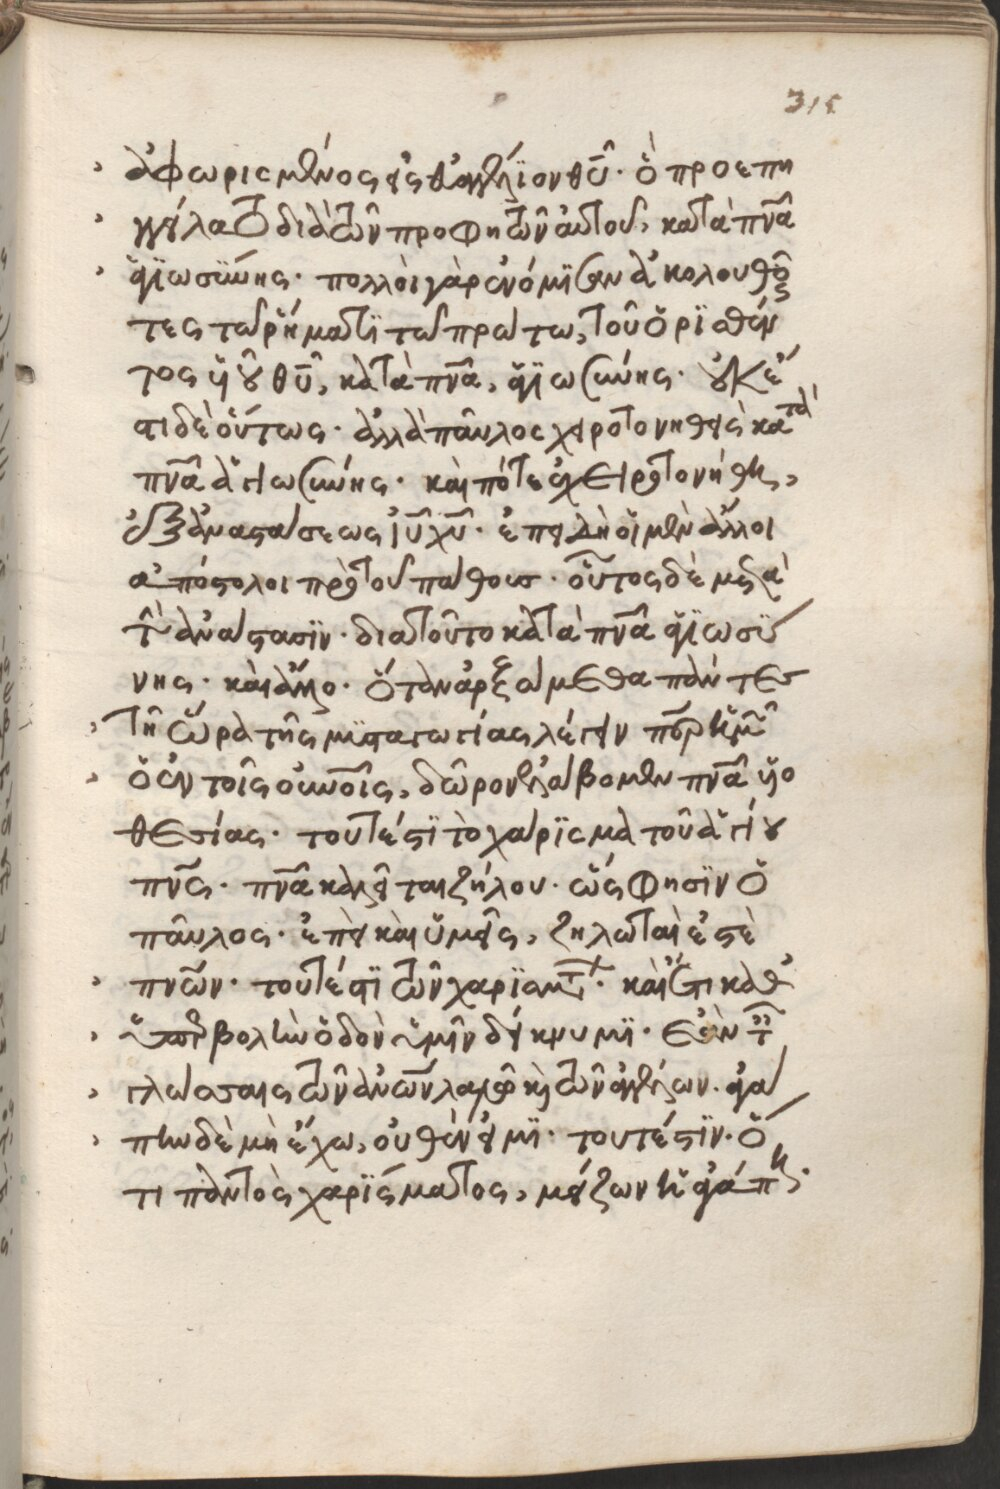 315
ἀφωρισμένος εἰς εὐαγγέλϊον θῦ· ὁ προεπη
γγείλατο διὰ τῶν προφητῶν ἀυτοῦ, κατὰ πνᾶ
ἁγϊωσϋνης· πολλοὶ γὰρ ἐνόμϊσαν ἀκολουθοῦν
τες τῶ ῥήματϊ τῶ πρώτω, τοῦ ὁρϊσθέν
τος ὑιοῦ θῦ, κατὰ πνᾶ, ἁγϊωσύνης· οὐκ ἔ
στι δὲ ὅυτως· ἀλλὰ παῦλος χειροτονηθεὶς κατὰ
πνᾶ ἁγιωσύνης· καὶ πότε ἐχειροτονήθη,
ἐξ ἀναστάσεως ἰῦ χῦ· ἐπειδὴ ὁι μὲν ἄλλοι
ἀπόστολοι πρὸ τοῦ πάθους· οὗτος δὲ μετὰ
τὴν ἀνάστασϊν· διατοῦτο κατὰ πνᾶ ἁγϊωσϋ
νης· καὶ ἄλλο· ὅταν ἀρξώμεθα πάντες
τῆ ὥρα τῆς μϋσταγωγίας λέγειν πὲρ ἡμῶν
ὁ ἐν τοῖς οὐνοῖς, δῶρον ἐλάβομεν πνᾶ ὑιο
θεσίας· τουτέστϊ τὸ χάρϊσμα τοῦ ἁγίου
πνς· πνᾶ καλεῖται ζήλου· ὥς φησϊν ὁ
παῦλος· ἐπεὶ καὶ ὑμεῖς, ζηλωταὶ ἐστὲ
πνων· τουτέστϊ τῶν χαρϊσμάτων· καὶ ἔτι καθ
ὑπερβολὴν ὁδὸν ὑμῖν δείκνυμϊ· ἐὰν ταῖς
γλώσσαις τῶν ἀνων λαλῶ καὶ τῶν ἀγγέλων· ἀγά
πην δὲ μὴ ἔχω, οὐθέν εἰμϊ· τουτέστϊν· ὅ
τι παντὸς χαρϊσματος, μείζων ἡ ἀγάπη·